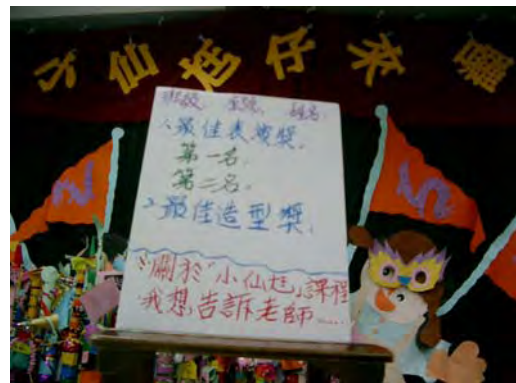 小仙尪仔來囉
班級 座號 姓名
1、最佳表演獎.
第一名.
第二名.
2、最佳造型獎.
※關於"小仙尪"課程
我想告訴老師......